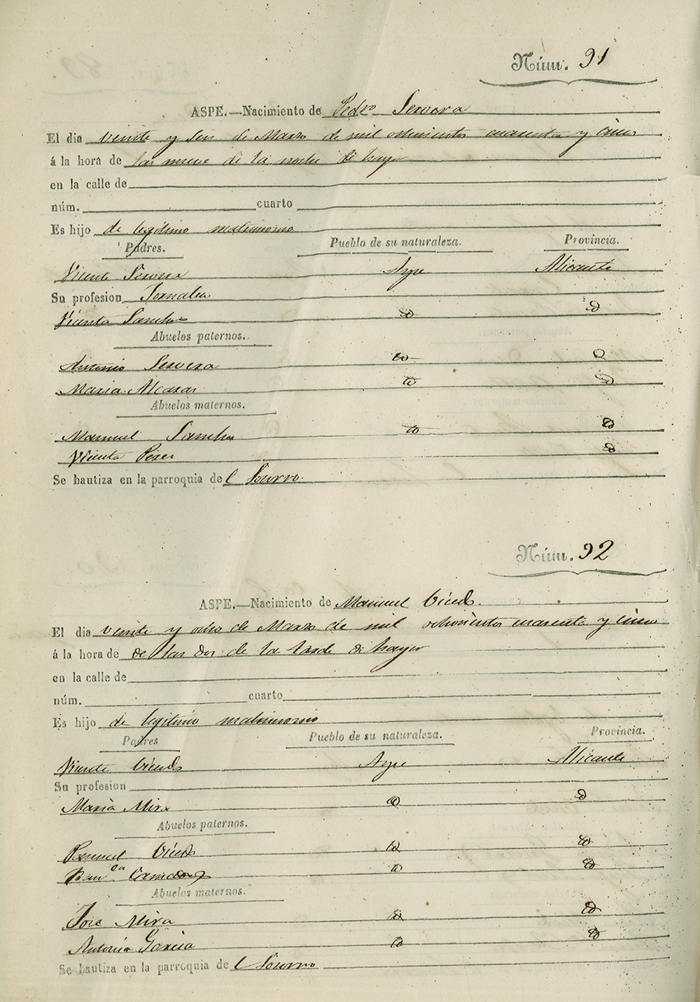 Núm. 91
ASPE.—Nacimiento de Pedro Servera
El dia veinte y seis de Marzo de mil ochocientos cuarenta y cinco
á la hora de las nueve de la noche
en la calle de
núm. cuarto
Es hijo de legitimo matrimonio
Padres. Pueblo de su naturaleza. Provincia.
Vicente Servera Aspe Alicante
Su profesion Jornalero
Vicenta Sanchez
Abuelos paternos.
Antonio Servera
Maria Alcaraz
Abuelos maternos.
Manuel Sanchez
Vicenta Perez
Se bautiza en la parroquia de l Socorro
Núm. 92
ASPE.—Nacimiento de Manuel
El dia veinte y ocho de Marzo de mil ochocientos cuarenta y cinco
á la hora de de las dos de la tarde
en la calle de
núm. cuarto
Es hijo de legitimo matrimonio
Padres Pueblo de su naturaleza. Provincia.
Vicente Aspe Alicante
Su profesion
Maria Mira
Abuelos paternos.
Abuelos maternos.
Jose Mira
Antonia Garcia
Se bautiza en la parroquia de l Socorro